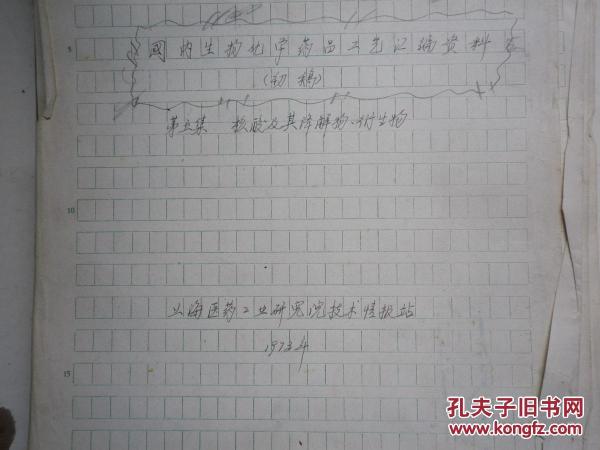 5
国内生物化学药品工艺汇编资料
(初稿)
第五集 核酸及其降解物、衍生物
10
上海医药工业研究院技术情报站
1973年
15
孔夫子旧书网
kongfz.com